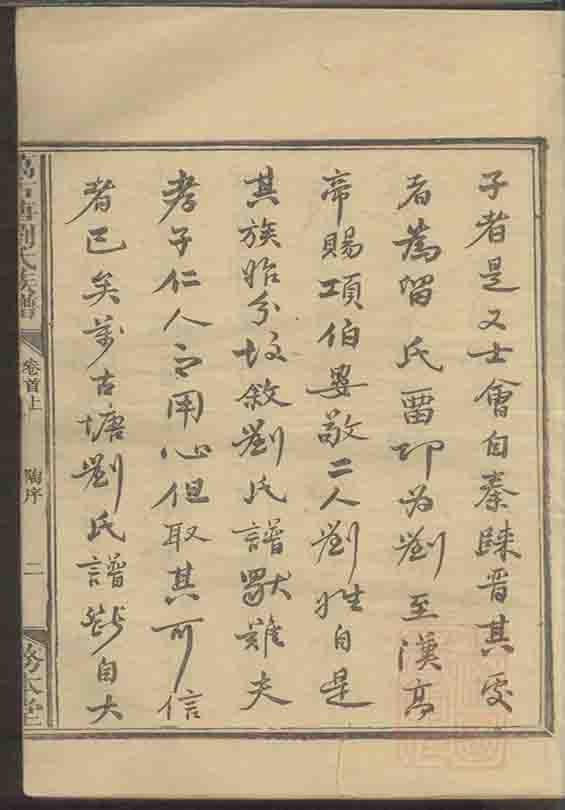 子者是又士會自秦歸晉其處
者為留氏畱卯为劉至漢高
帝賜項伯婁敬二人劉姓自是
其族始分故敘劉氏譜獸難夫
孝子仁人之用心但取其可信
者已矣萬古塘劉氏譜斷自大
萬古塘劉氏族譜
卷首上
陶序
二
務本堂